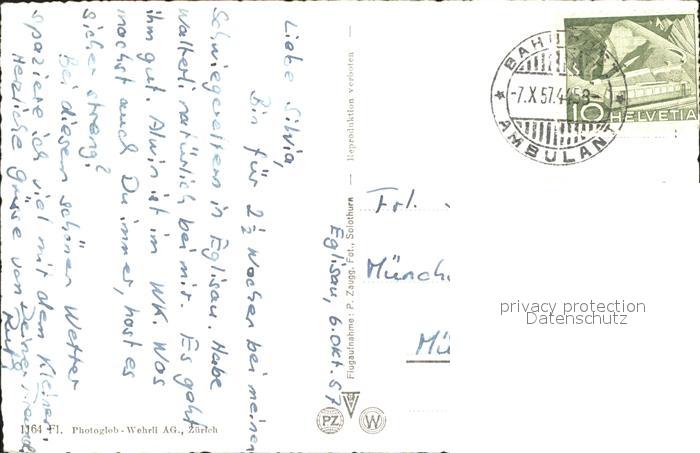 Eglisau, 6. Okt. 57
Liebe Silvia,
Bin für 2½ Wochen bei meinen
Schwiegereltern in Eglisau. Habe
Walterli natürlich bei mir. Es geht
ihm gut. Alwin ist im WK. Was
machst auch Du immer, hast es
sicher streng?
Bei diesem schönen Wetter
spaziere ich viel mit dem Kleinen.
Herzliche Grüsse von Deiner
Ruth
Reproduktion verboten
Flugaufnahme: P. Zaugg, Fot., Solothurn
1164 Fl. Photoglob-Wehrli AG., Zürich
PZ W
Frl.
Münch
Mü
-7.X.57
AMBULANT
10 HELVETIA
privacy protection
Datenschutz